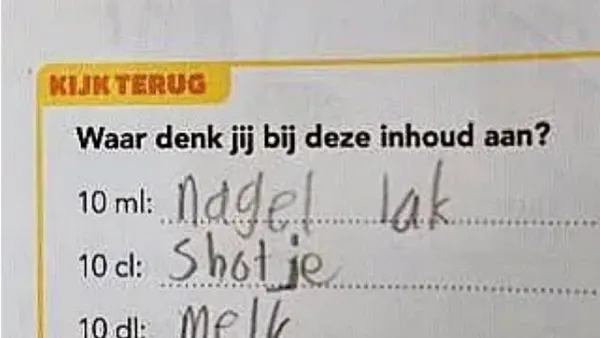 KIJK TERUG
Waar denk jij bij deze inhoud aan?
10 ml: nagel lak
10 cl: Shotje
10 dl: melk